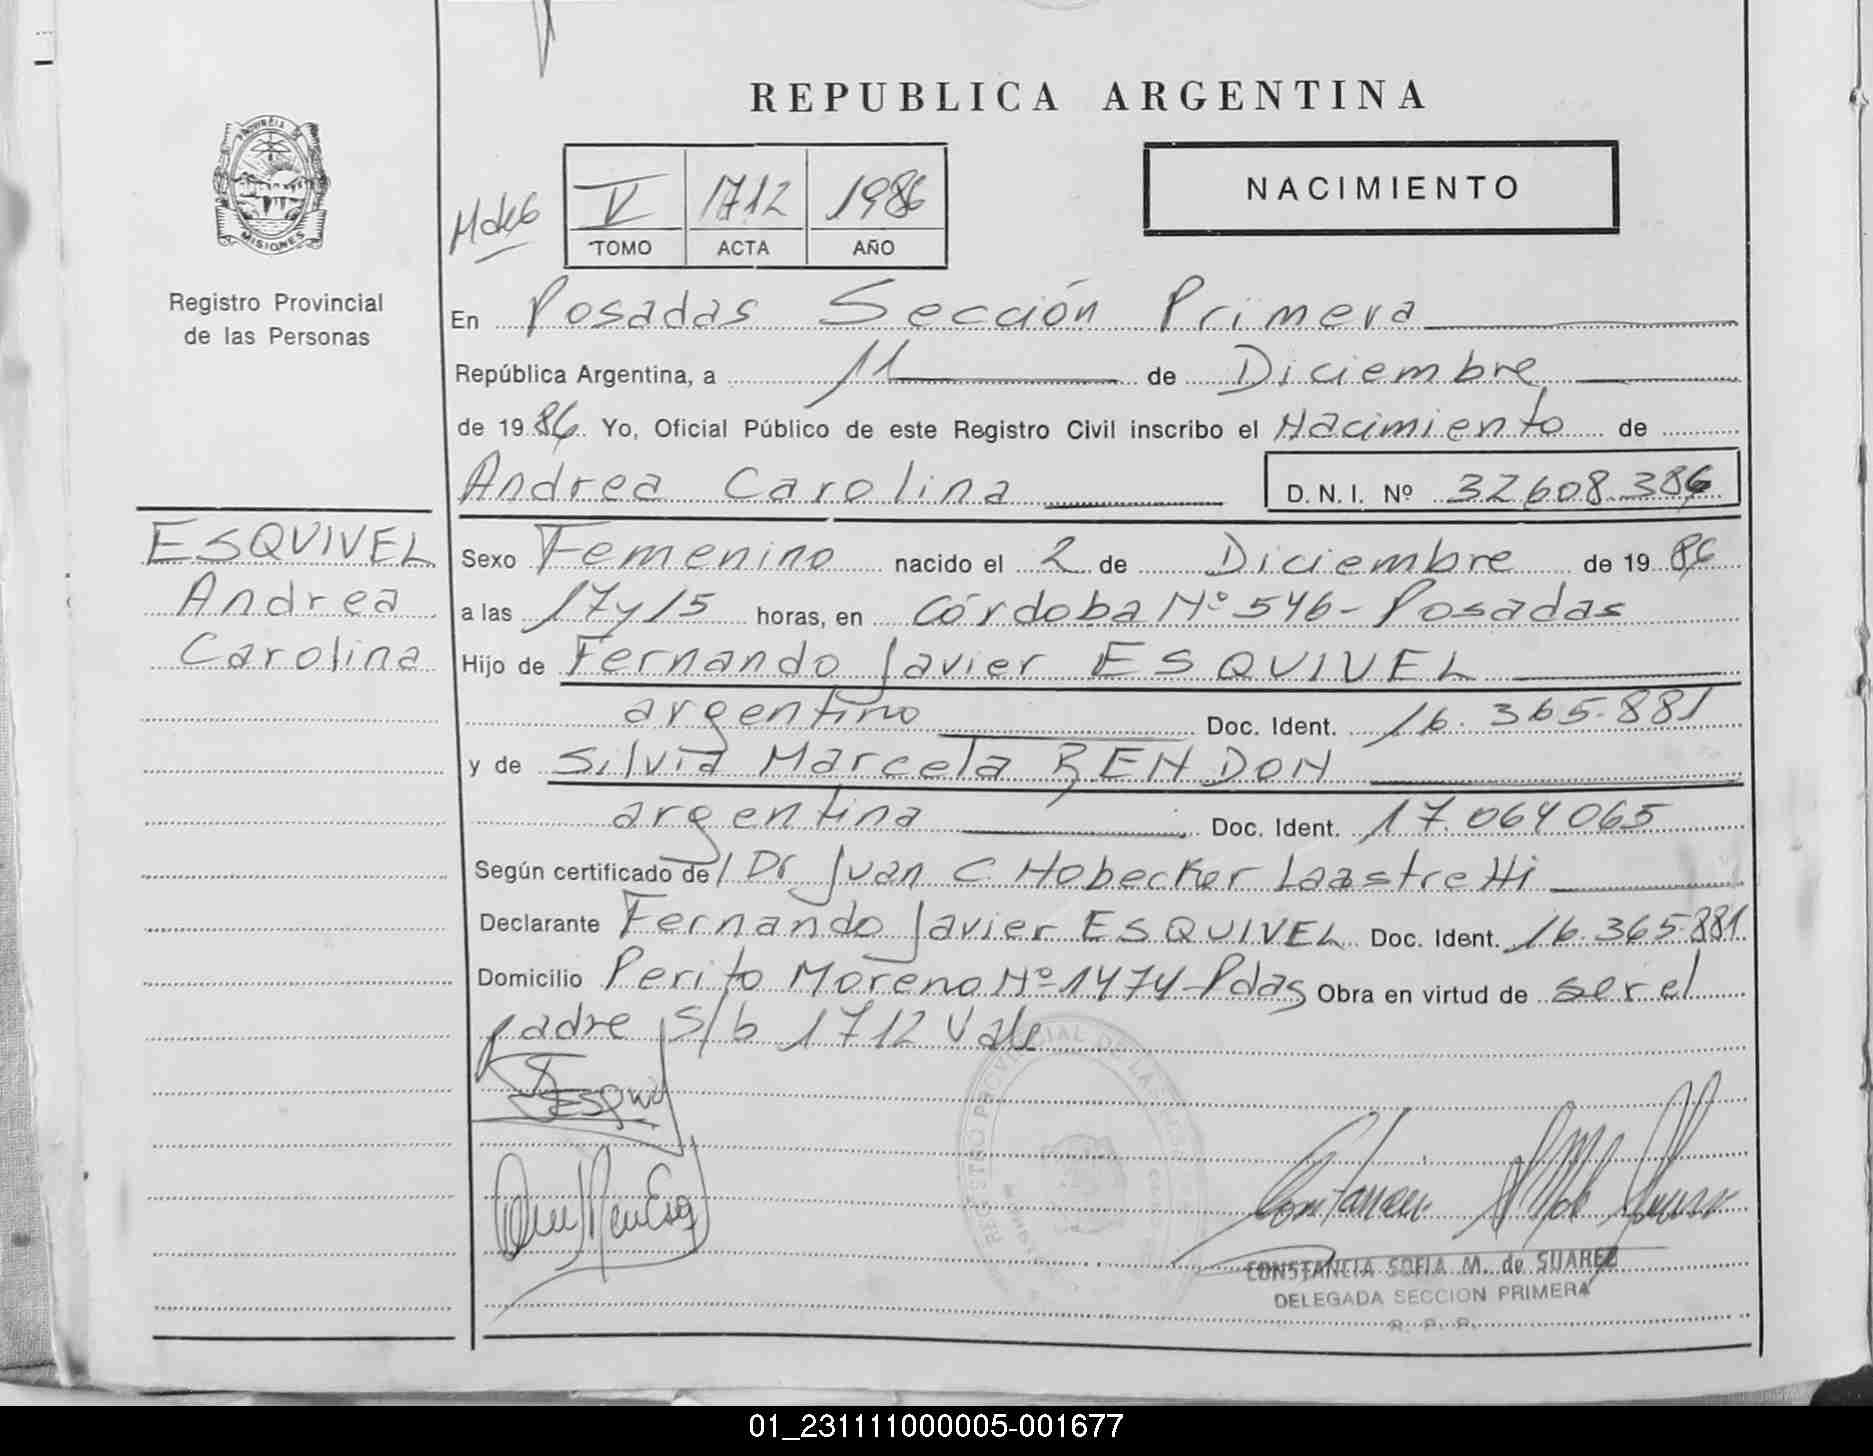 REPUBLICA ARGENTINA
PROVINCIA DE
MISIONES
Registro Provincial
de las Personas
V 1712 1986
TOMO ACTA AÑO
NACIMIENTO
En Posadas Sección Primera
República Argentina, a 11 de Diciembre
de 1986 Yo, Oficial Público de este Registro Civil inscribo el Nacimiento de
Andrea Carolina D.N.I. Nº 32608.386
ESQUIVEL
Andrea
Carolina
Sexo Femenino nacido el 2 de Diciembre de 1986
a las 17 y 15 horas, en Córdoba Nº 546 - Posadas
Hijo de Fernando Javier ESQUIVEL
argentino Doc. Ident. 16.365.881
y de Silvia Marcela RENDON
argentina Doc. Ident. 17.064065
Según certificado de l Dr Juan C Hobecker Laastretti
Declarante Fernando Javier ESQUIVEL Doc. Ident. 16.365.881
Domicilio Perito Moreno Nº 1474 - Pdas Obra en virtud de ser el
padre s/b 1712 Vale
REGISTRO PROVINCIAL DE LAS
CONSTANCIA SOFIA M. de SUAREZ
DELEGADA SECCION PRIMERA
R. P. P.
01_231111000005-001677